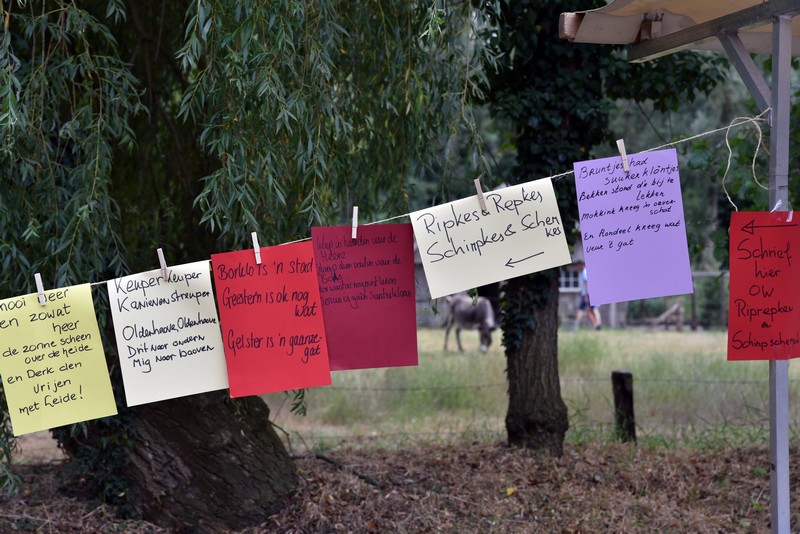 mooi weer
en zowat
heer
de zonne scheen
over de heide
en Derk den
Vrijen
met heide!
Keuper Keuper
Kanieven Streuper
Oldenhave, Oldenhave
Drit noar ondern
Mig noar booven
Borklo is 'n stad
Geestern is ok nog
wat
Gelster is 'n gaanze-
gat
in
veur de
veur de
Ripkes & Repkes
Schimpkes & Schem
kes
Bruntjes had
suukerklöntjes
Bekken stond d'r bij te
Lekken
Mokkink kreeg 'n oaver-
schot
En Rondeel kreeg wat
veur 't gat
Schrief
hier
OW
Riprepken
&
Schimpschemp